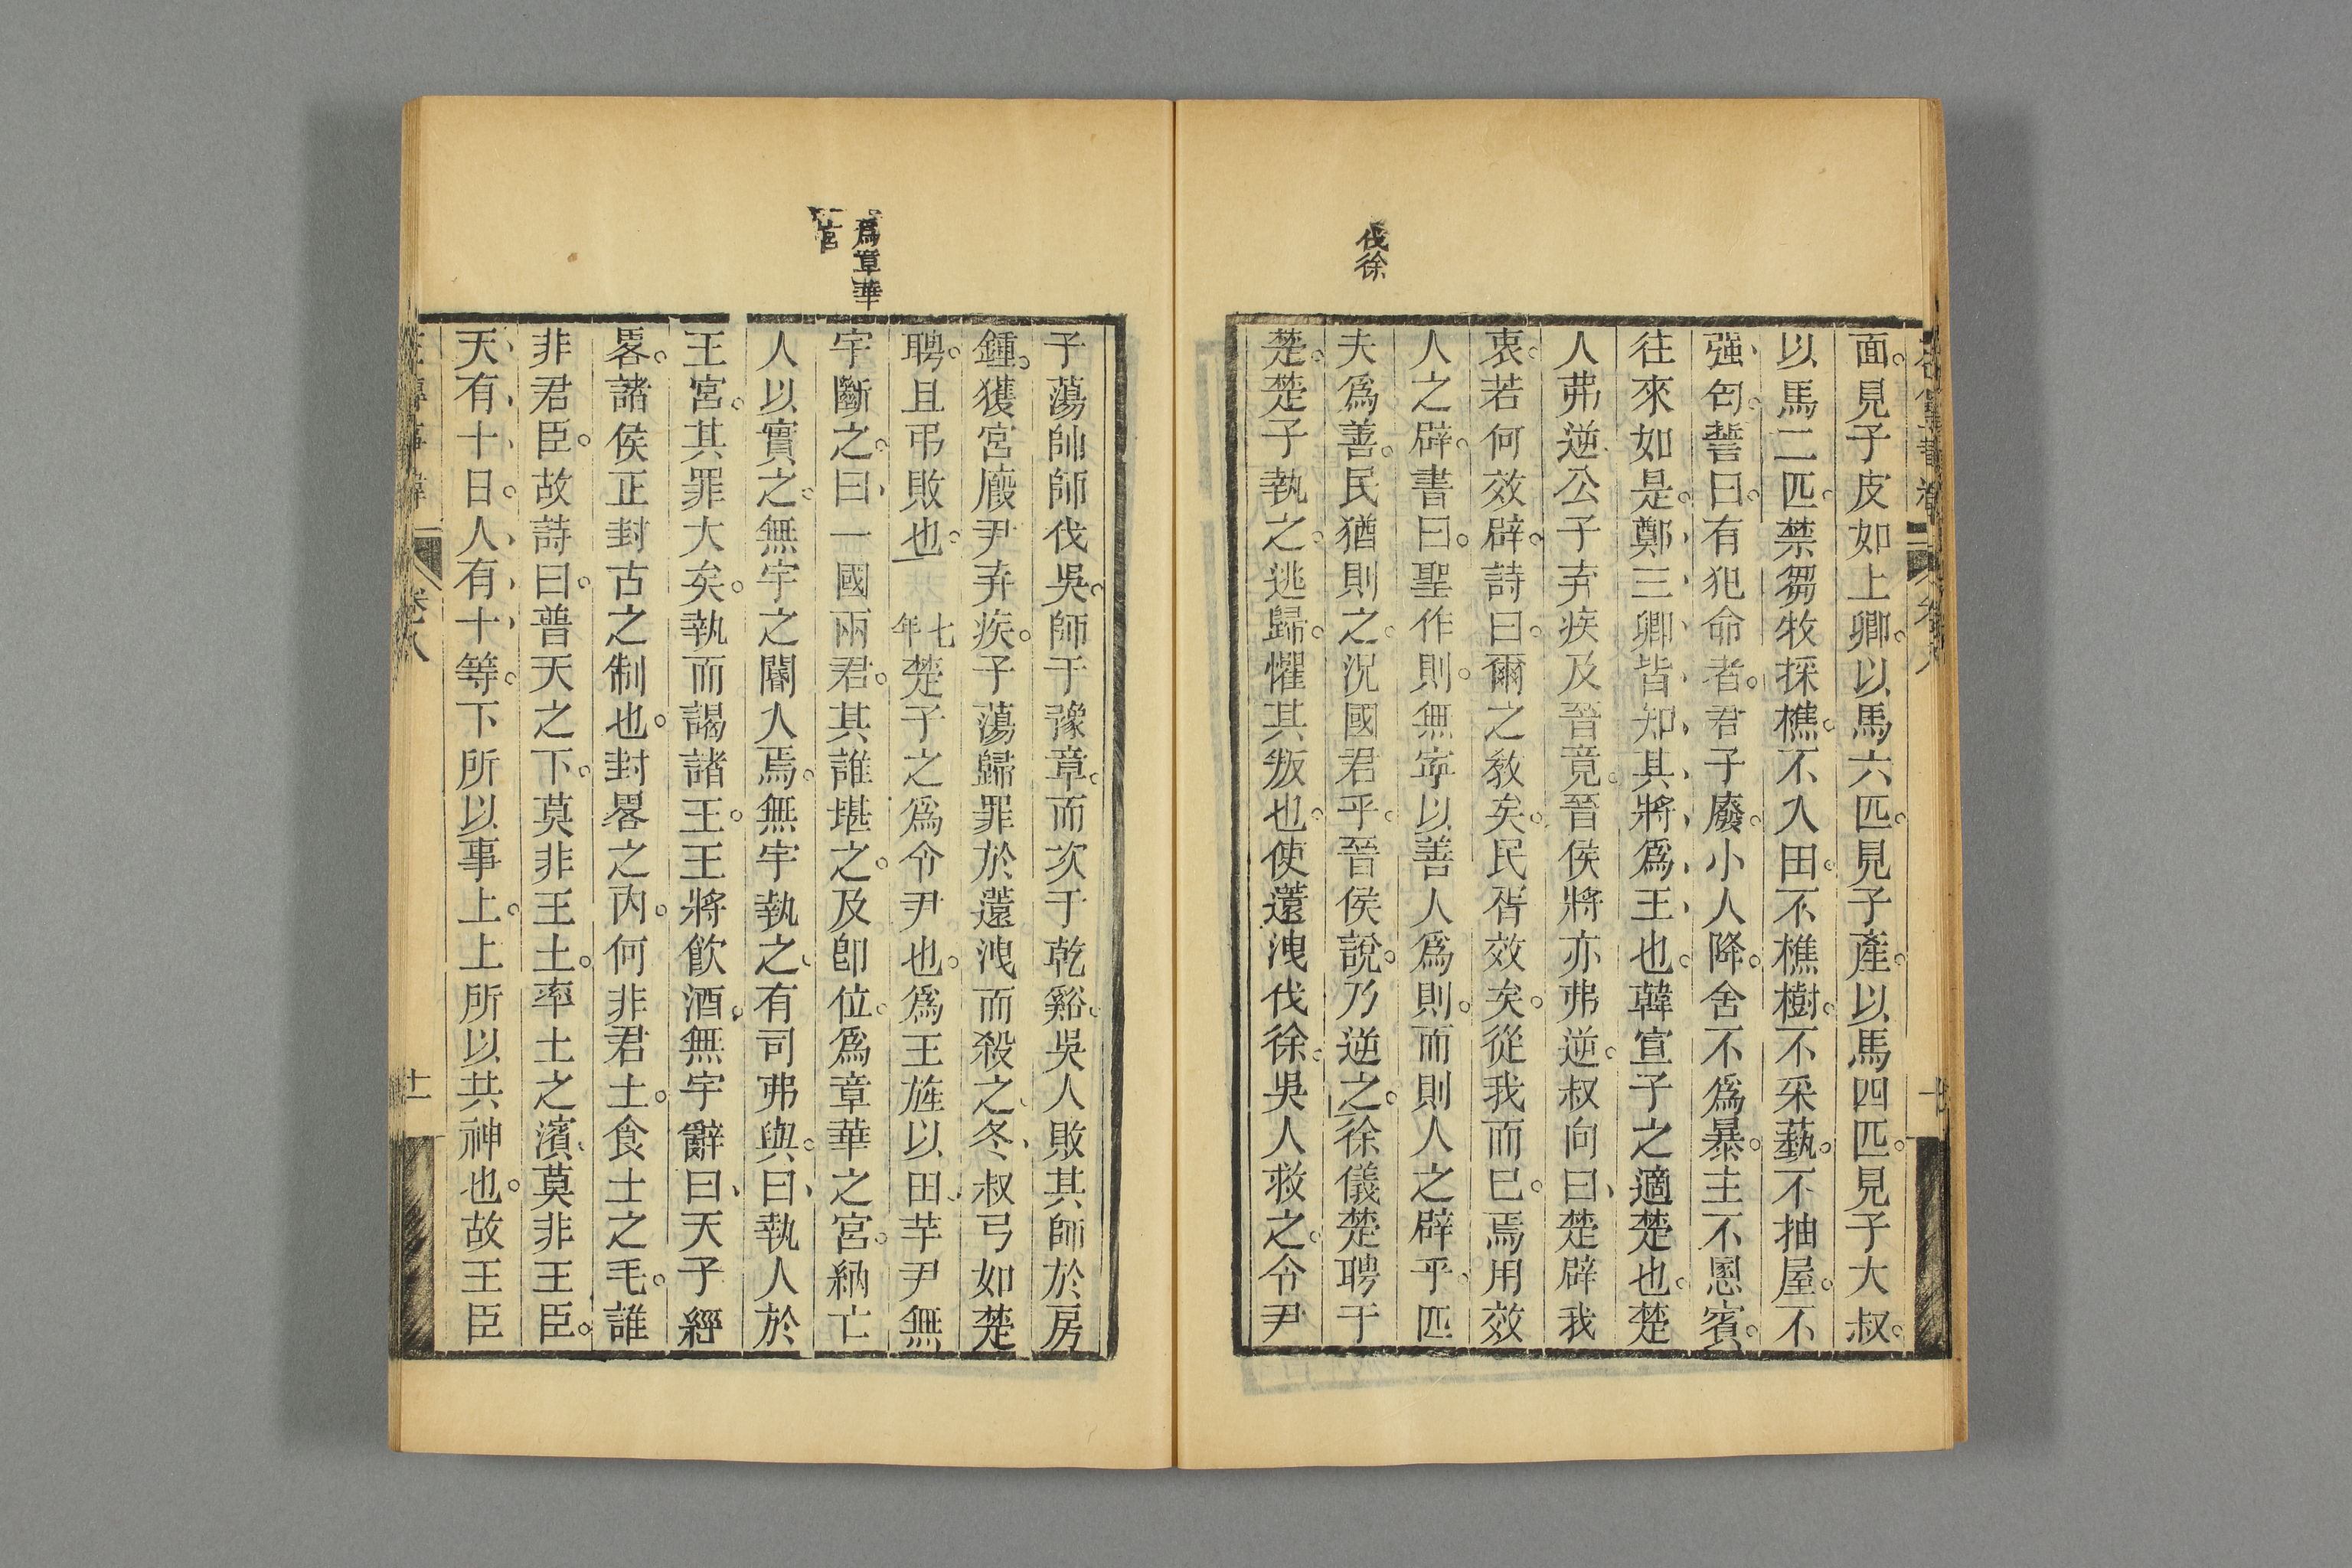 伐徐
面。見子皮如上卿。以馬六匹。見子產。以馬四匹。見子大叔。
以馬二匹。禁芻牧採樵。不入田。不樵樹。不采蓺。不抽屋。不
強匄。誓曰。有犯命者。君子廢。小人降。舍不爲暴。主不慁賓。
往來如是。鄭三卿皆知其將爲王也。韓宣子之適楚也。楚
人弗逆。公子弃疾及晉竟。晉侯將亦弗逆。叔向曰、楚辟我
衷。若何效辟。詩曰。爾之敎矣。民胥效矣。從我而已。焉用效
人之辟。書曰。聖作則。無寧以善人爲則。而則人之辟乎。匹
夫爲善。民猶則之。況國君乎。晉侯說。乃逆之。徐儀楚聘于
楚。楚子執之。逃歸。懼其叛也。使薳洩伐徐。吳人救之。令尹
爲章華
宮
子蕩帥師伐吳。師于豫章。而次于乾谿。吳人敗其師於房
鍾。獲宮廄尹弃疾。子蕩歸罪於薳洩而殺之、冬、叔弓如楚
聘。且弔敗也。七年楚子之爲令尹也。爲王旌以田、芋尹無
宇斷之。曰、一國兩君。其誰堪之。及卽位。爲章華之宮。納亡
人以實之。無宇之閽入焉。無宇執之、有司弗與。曰、執人於
王宮。其罪大矣。執而謁諸王。王將飮酒、無宇辭曰、天子經
畧。諸侯正封古之制也。封畧之內。何非君土。食土之毛。誰
非君臣。故詩曰。普天之下。莫非王土。率土之濱、莫非王臣。
天有十日。人有十等。下所以事上。上所以共神也。故王臣
卷八
十一